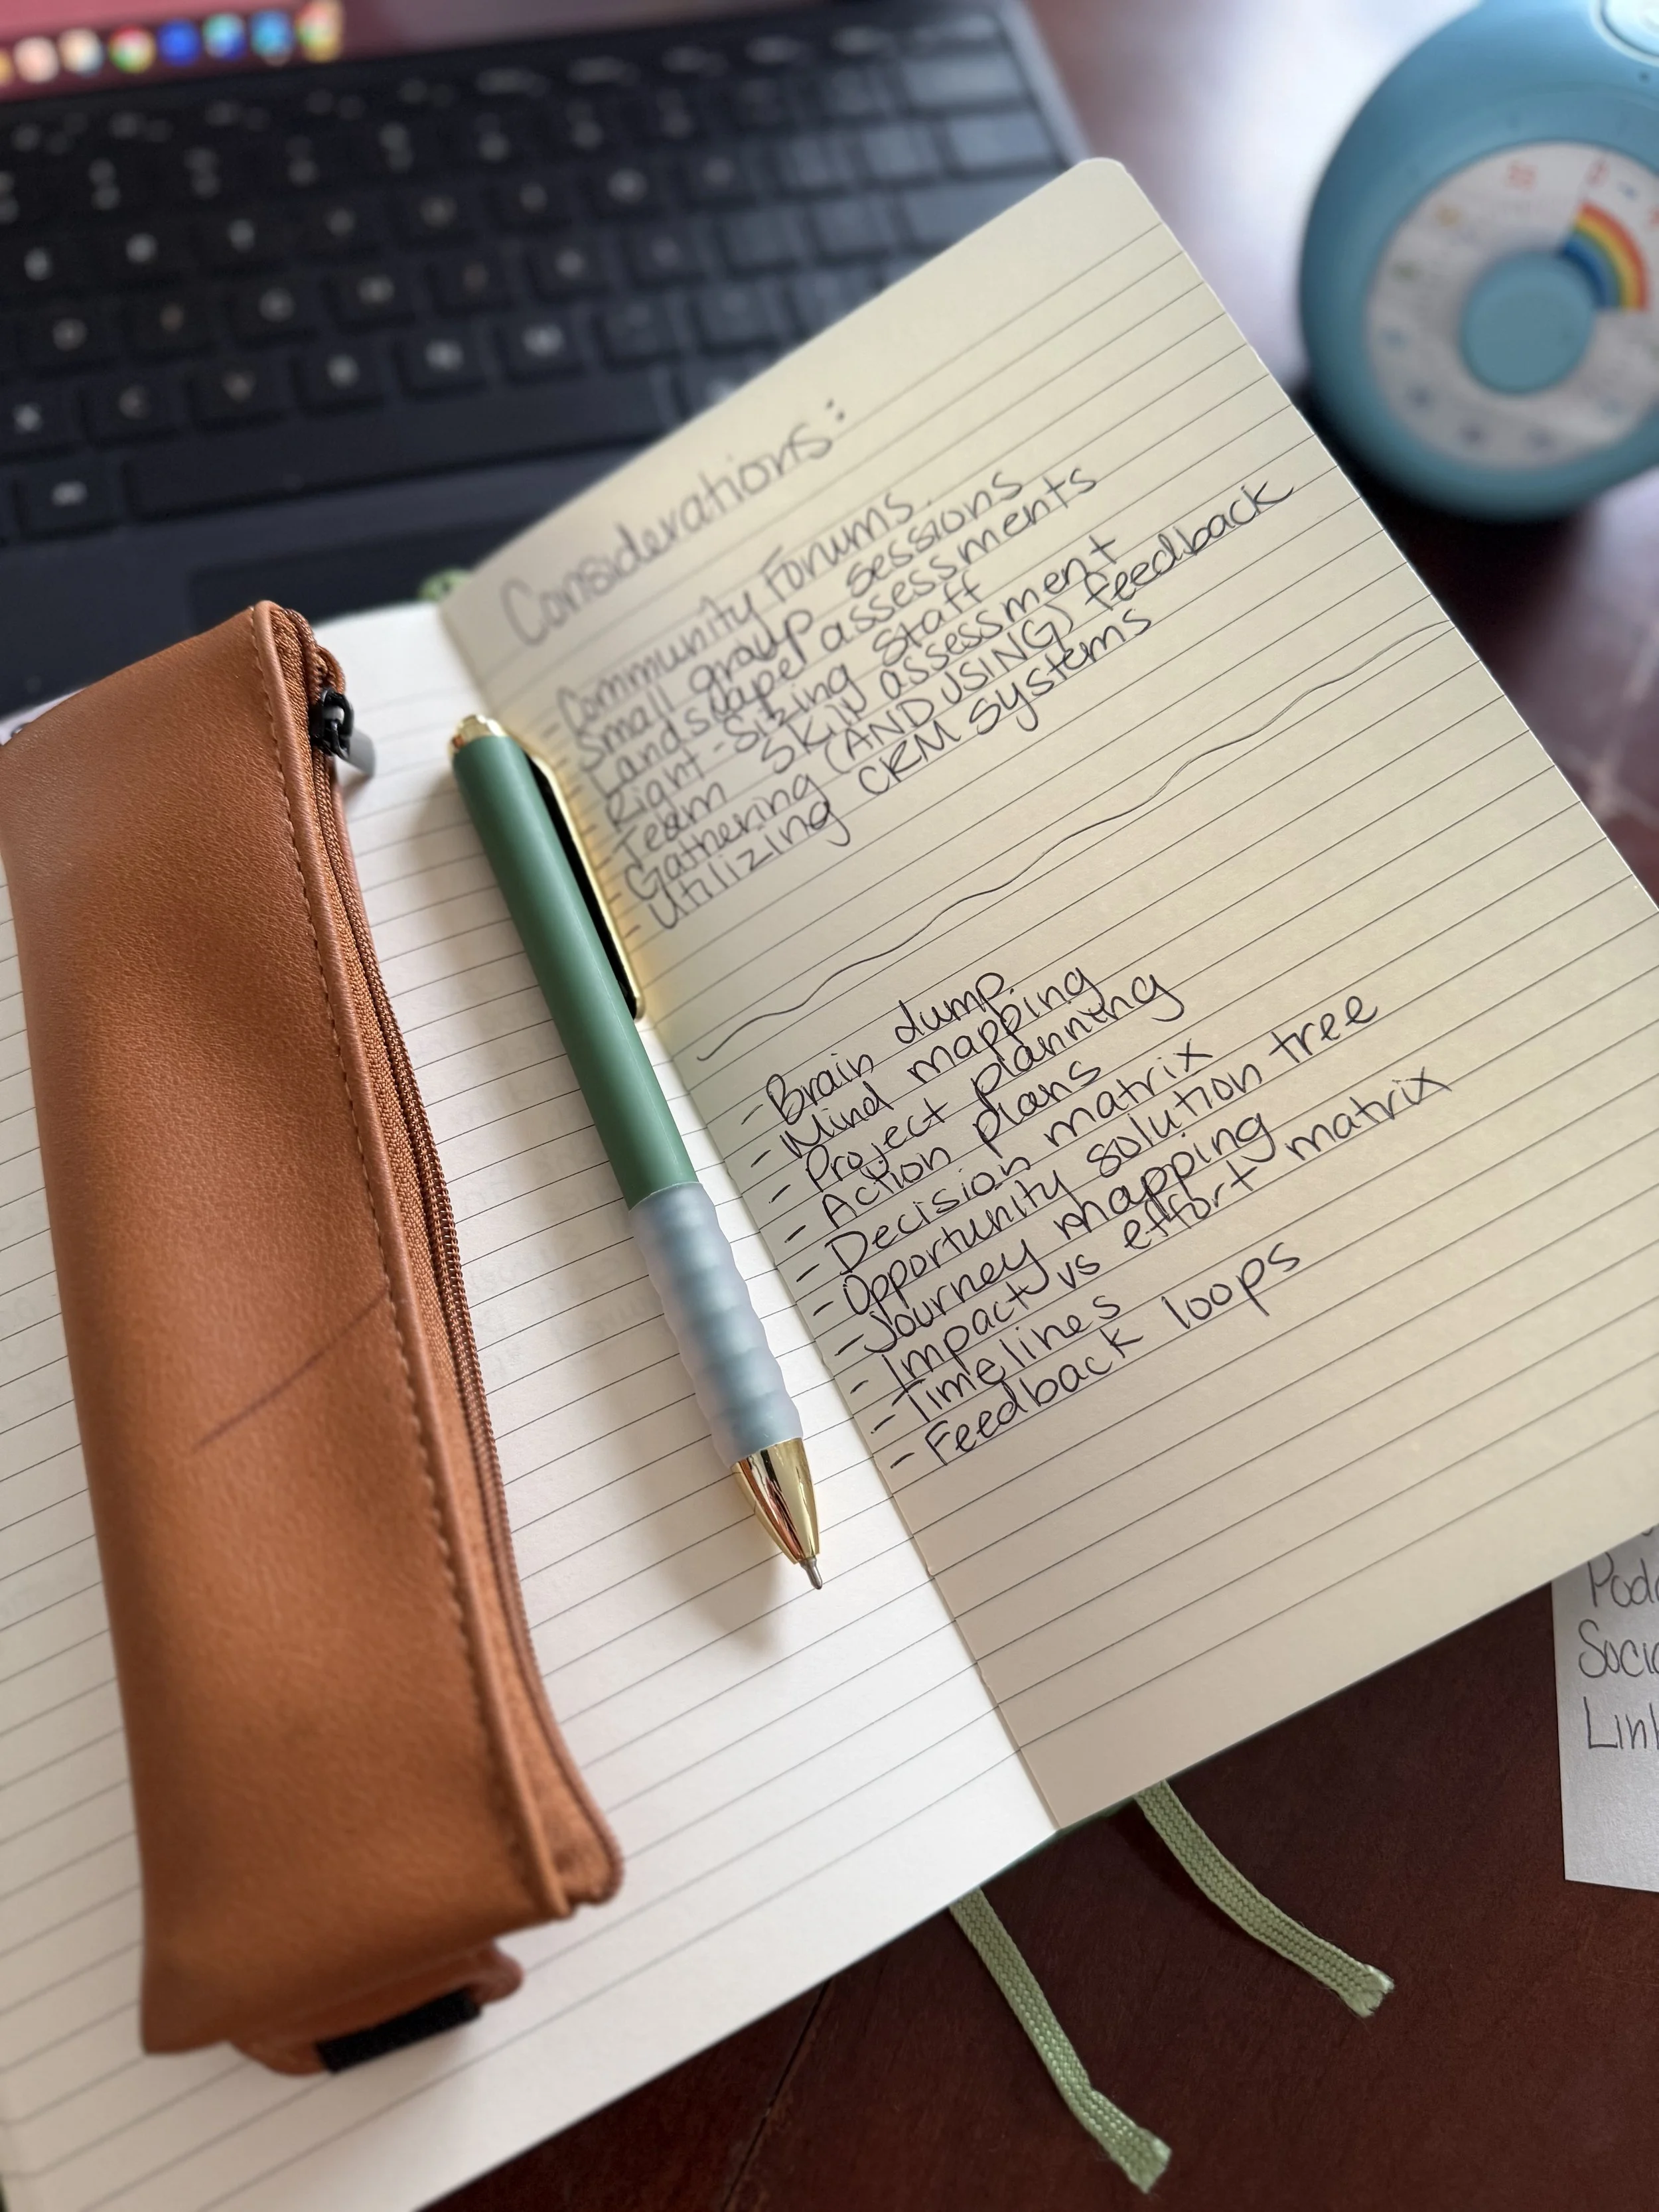 Considerations:
- Community Forums
- Small group sessions
- Landscape assessments
- Right-sizing staff
- Team skill assessment
- Gathering (AND USING) feedback
- Utilizing CRM systems
- Brain dump
- Mind mapping
- Project planning
- Action plans
- Decision matrix
- Opportunity solution tree
- Journey mapping
- Impact vs effort matrix
- Timelines
- Feedback loops